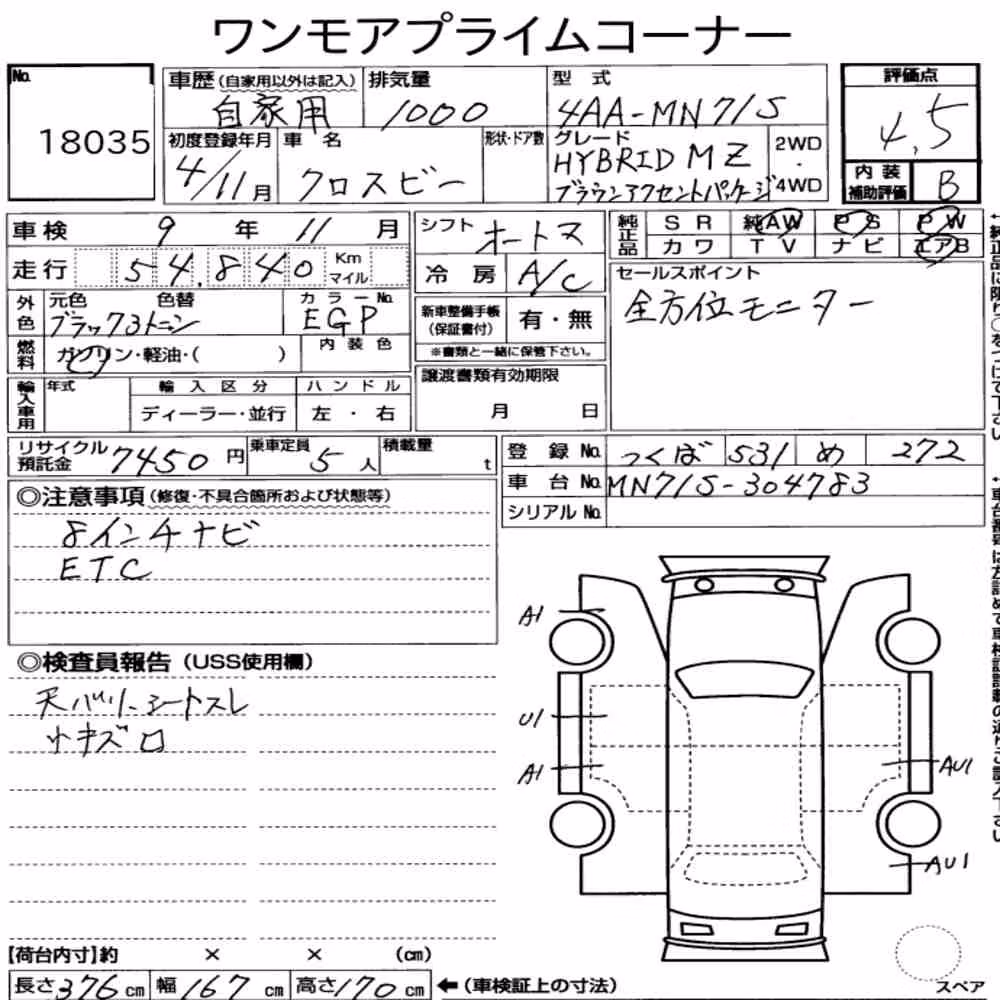 ワンモアプライムコーナー
No. 18035
車歴(自家用以外は記入) 自家用
排気量 1000
型 式 4AA-MN71S
評価点 4.5
初度登録年月 4/11月
車 名 クロスビー
形状・ドア数
グレード HYBRID MZ
ブラウンアクセントパッケージ
2WD・4WD
内装補助評価 B
車検 9 年 11 月
シフト オートマ
純正品 SR 純AW PS PW
カワ TV ナビ エアB
走行 54,840 Km マイル
冷房 A/C
セールスポイント
全方位モニター
外色 元色 色替 ブラック3トーン
カラーNo. EGP
新車整備手帳(保証書付) 有・無
※書類と一緒に保管下さい。
燃料 ガソリン・軽油・( )
内装色
輸入車用 年式 輸入区分 ハンドル
ディーラー・並行 左・右
譲渡書類有効期限
月 日
リサイクル預託金 7450円
乗車定員 5人
積載量 t
登録No. つくば 531 め 272
車台No. MN71S-304783
シリアルNo.
◎注意事項(修復・不具合箇所および状態等)
8インチナビ
ETC
◎検査員報告(USS使用欄)
天バリ、シートスレ
小キズロ
A1
U1
A1
AU1
AU1
【荷台内寸】約 × × (cm)
長さ376cm 幅167cm 高さ170cm
←(車検証上の寸法)
スペア